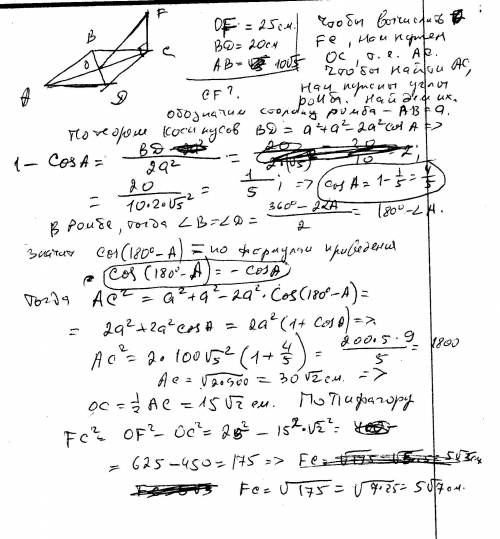 F
B
C
O
A
D
OF = 25 см.
BD = 20 см
AB = 10√5
CF ?
Чтобы вычислить
FC, нам нужен
OC, т. е. AC.
Чтобы найти AC,
нам нужны углы
ромба. Найдем их.
обозначим сторону ромба - AB = a.
По теореме косинусов BD = a² + a² - 2a² cos A =>
1 - cos A = BD / 2a² =
= 20 / 10·2·√5² = 1/5 ; => cos A = 1 - 1/5 = 4/5
В ромбе, тогда ∠B = ∠D = 360° - 2∠A / 2 = 180° - ∠A.
Значит cos(180° - A) = по формулам приведения
cos(180° - A) = - cos A
тогда AC² = a² + a² - 2a² · cos(180° - A) =
= 2a² + 2a² cos A = 2a² (1 + cos A) =>
AC² = 2·100√5² (1 + 4/5) = 200·5·9 / 5 = 1800
AC = √2·900 = 30√2 см. =>
OC = ½ AC = 15√2 см. По Пифагору
FC² = OF² - OC² = 25² - 15²·√2² =
= 625 - 450 = 175 =>
FC = √175 = √7·25 = 5√7 см.